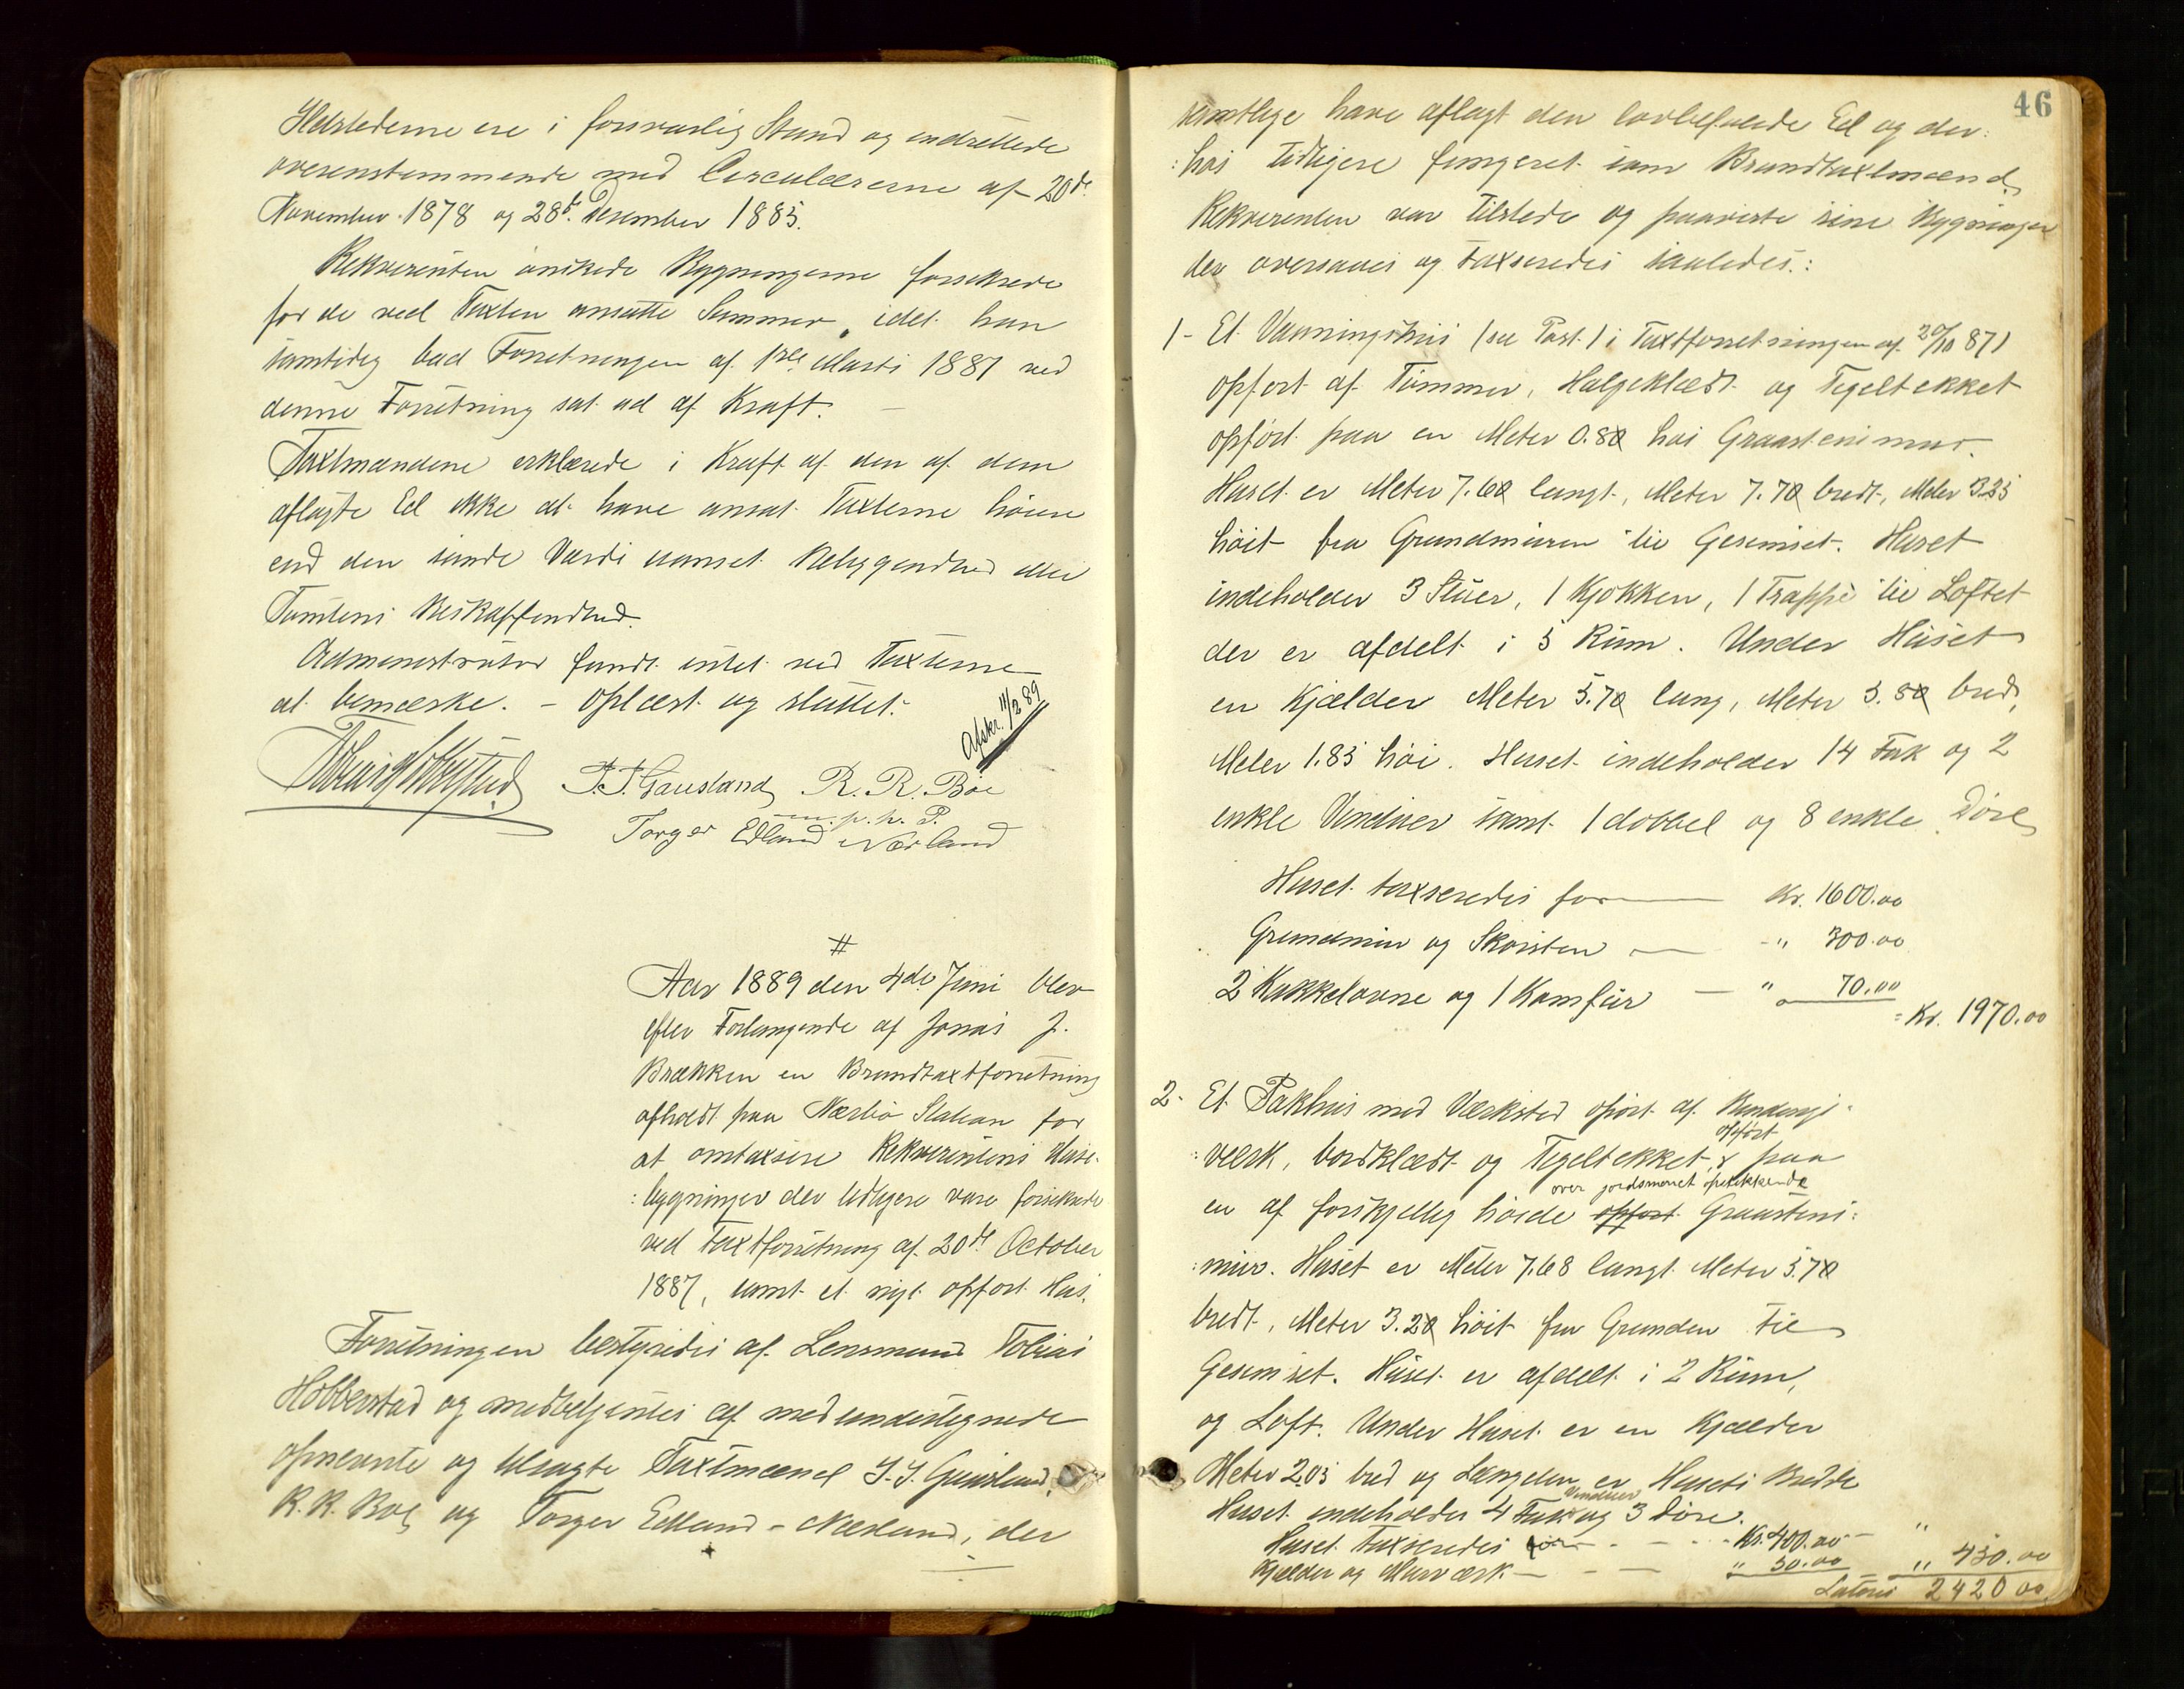 Ildstederne ere i forsvarlig Stand og indrettede
overensstemmende med Circulærerne af 20de
November 1878 og 28de Desember 1885.
Rekvirenten ønskede Bygningerne forsikrede
for de ved Taxten ansatte Summer, idet han
samtidig bad Forretningen af 1ste Marts 1881 ved
denne Forretning sat ud af Kraft. –
Taxtmændene erklærede i Kraft af den af dem
aflagte Ed ikke at have ansat Taxterne høiere
end den sande Værdi uanset Beliggendhed eller
Tomtens Beskaffendhed.
Administrator fandt intet ved Taxterne
at bemærke. – Oplæst og sluttet.
Afskr. 11/2 89
Tobias Hobberstad T. T. Gausland R. R. Bøe
m. p. h. P.
Torger Edland Nærland
#
Aar 1889 den 4de Juni blev
efter Forlangende af Jonas J.
Brækken en Brandtaxtforretning
afholdt paa Nærbø Station for
at omtaxere Rekvirentens Huse-
:bygninger der tidligere vare forsikrede
ved Taxtforretning af 20de October
1887, samt et nyt opført Hus.
Forretningen bestyredes af Lensmand Tobias
Hobberstad og medbetjentes af medundertegnede
opnevnte og tilsagte Taxtmænd T. T. Gausland,
R. R. Bøe og Torger Edland-Nærland, der
46
samtlige have aflagt den lovbefalede Ed og der:
:hos tidligere fungeret som Brandtaxtmænd.
Rekvirenten var tilstede og paaviste sine Bygninger
der oversaaes og taxseredes saaledes:
1- Et Vaaningshus (se Post 1 i Taxtforretningen af 20/10 87)
opført af Tømmer, Halpeklædt og Tegeltekket
opført paa en Meter 0.80 høi Graastensmur.
Huset er Meter 7.60 langt, Meter 7.70 bredt, Meter 3.35
høit fra Grundmuren til Gesemset. Huset
indeholder 3 Stuer, 1 Kjøkken, 1 Trappe til Loftet
der er afdelt i 5 Rum. Under Huset
en Kjælder Meter 5.70 lang, Meter 3.80 bred,
Meter 1.85 høi. Huset indeholder 14 Fak og 2
enkle Vinduer samt 1 dobbel og 8 enkle Døre
Huset taxseredes for — Kr. 1600.00
Grundmur og Skorsten — - " 300.00
2 Kakkelovne og 1 Komfur — " 70.00
= Kr. 1970.00
2- Et Pakhus med Værksted opført af Bindings-
:verk, bordklædt og Tegeltekket, opført paa
en af forskjellig høide opført over jordsmonet opstikkende Graastens:
:mur. Huset er Meter 7.68 langt Meter 5.70
bredt, Meter 3.20 høit fra Grunden til
Gesemset. Huset er afdelt i 2 Rum,
og Loft. Under Huset er en Kjælder
Meter 2.05 bred og Længden er Husets Bredde
Huset indeholder 4 Fak Vinduer og 3 Døre.
Huset Taxseredes for - — - Kr. 400.00 —
Kjælder og Murværk — - — " 50.00 " 450.00
Lateris 2420 00